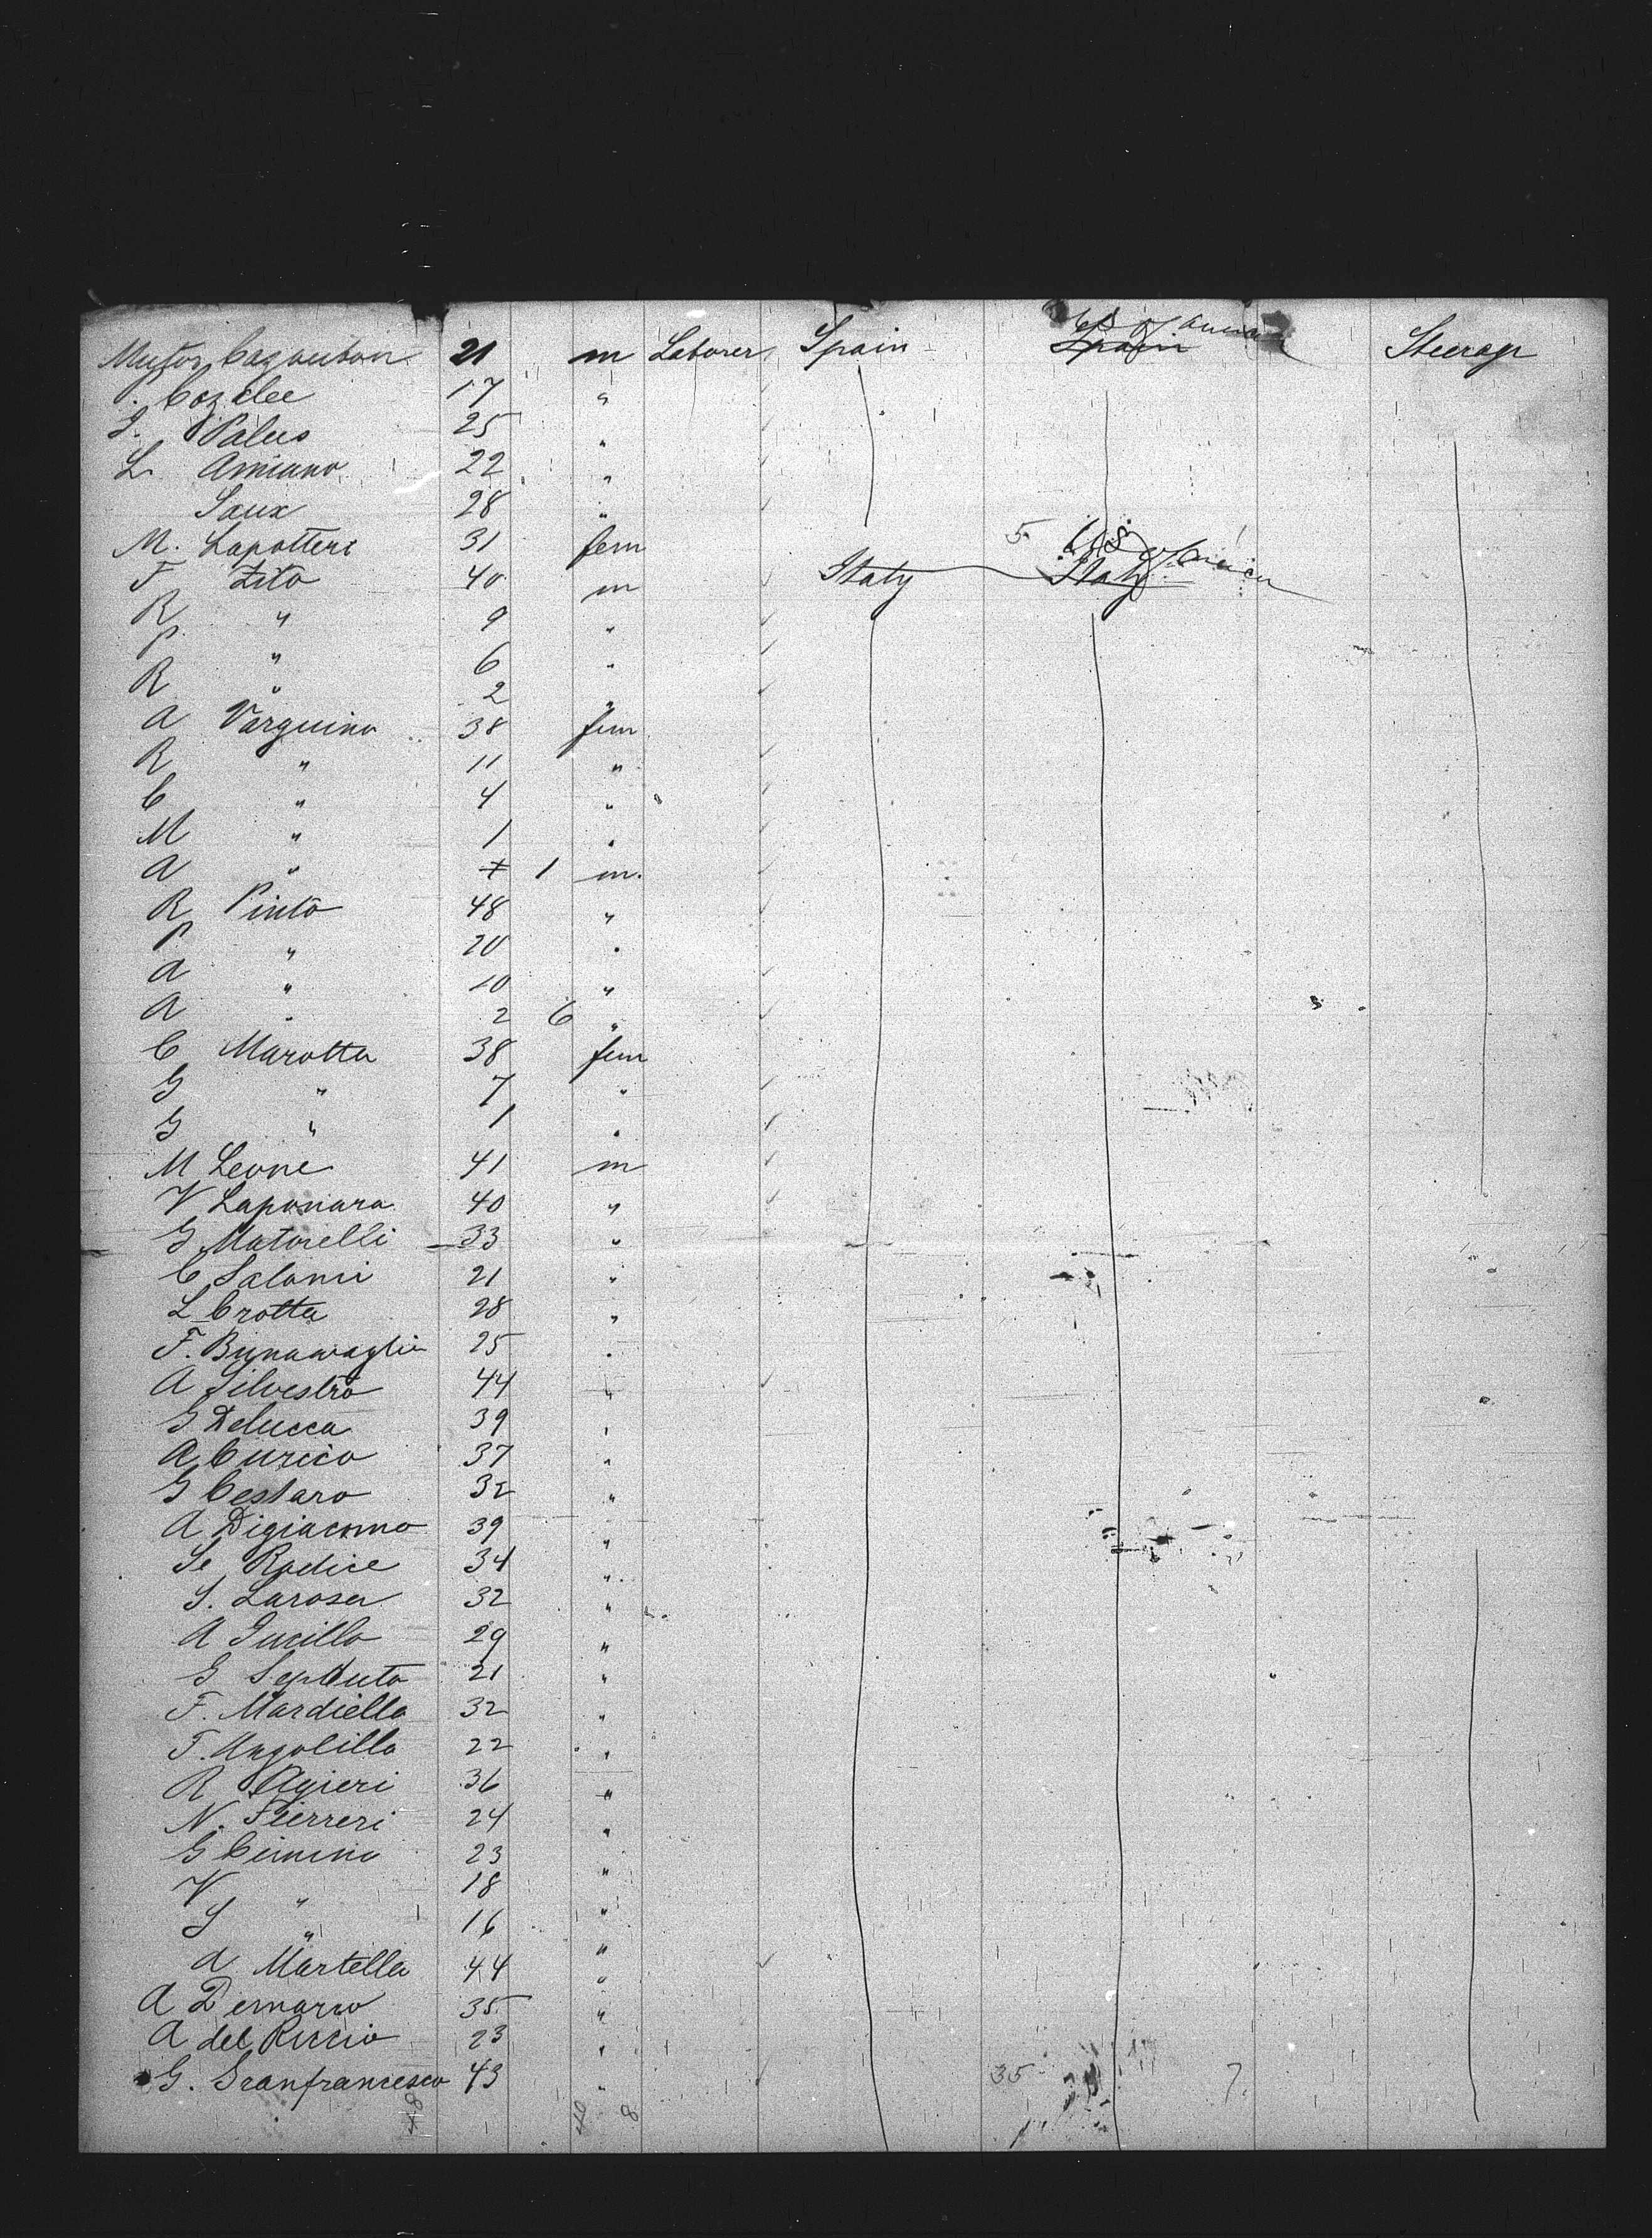 Cazaubon 21 m Laborer Spain Spain U S of America Steerage
17 "
Palus 25 "
L. Amiano 22 "
Saux 28 "
M. Lapotteri 31 fem 5 U S of America
F Zito 40 m Italy Italy
R " 9 "
P. " 6 "
R " 2 "
A Varguino 38 fem
R " 11 "
C " 4 "
M " 1 "
A " 1 m.
R Pinto 48 "
P " 20 "
A " 10 "
A " 2 6 "
C Marotta 38 fem
G " 7 "
G " 1 "
M Leone 41 m
V Laponara 40 "
G Matorelli 33 "
C Salomi 21 "
L Crotta 28 "
F. 25 "
A Silvestro 44 "
G Delucca 39 "
A Curcio 37 "
G Cestaro 32 "
A Digiacomo 39 "
Se Rodice 34 "
S. Larosa 32 "
A Gucillo 29 "
G 21 "
F. Mardiello 32 "
T. Angolillo 22 "
R Agieri 36 "
N. Fierreri 24 "
G Cimino 23 "
V " 18 "
S " 16 "
A Martella 44 "
A 35 "
A del Riccio 23 "
G. Granfrancesco 43 " 35 7.
48 40 8